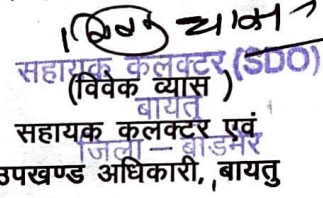 सहायक कलक्टर (SDO)
(विवेक व्यास)
बायतु
सहायक कलक्टर एवं
जिला – बाडमेर
उपखण्ड अधिकारी, बायतु